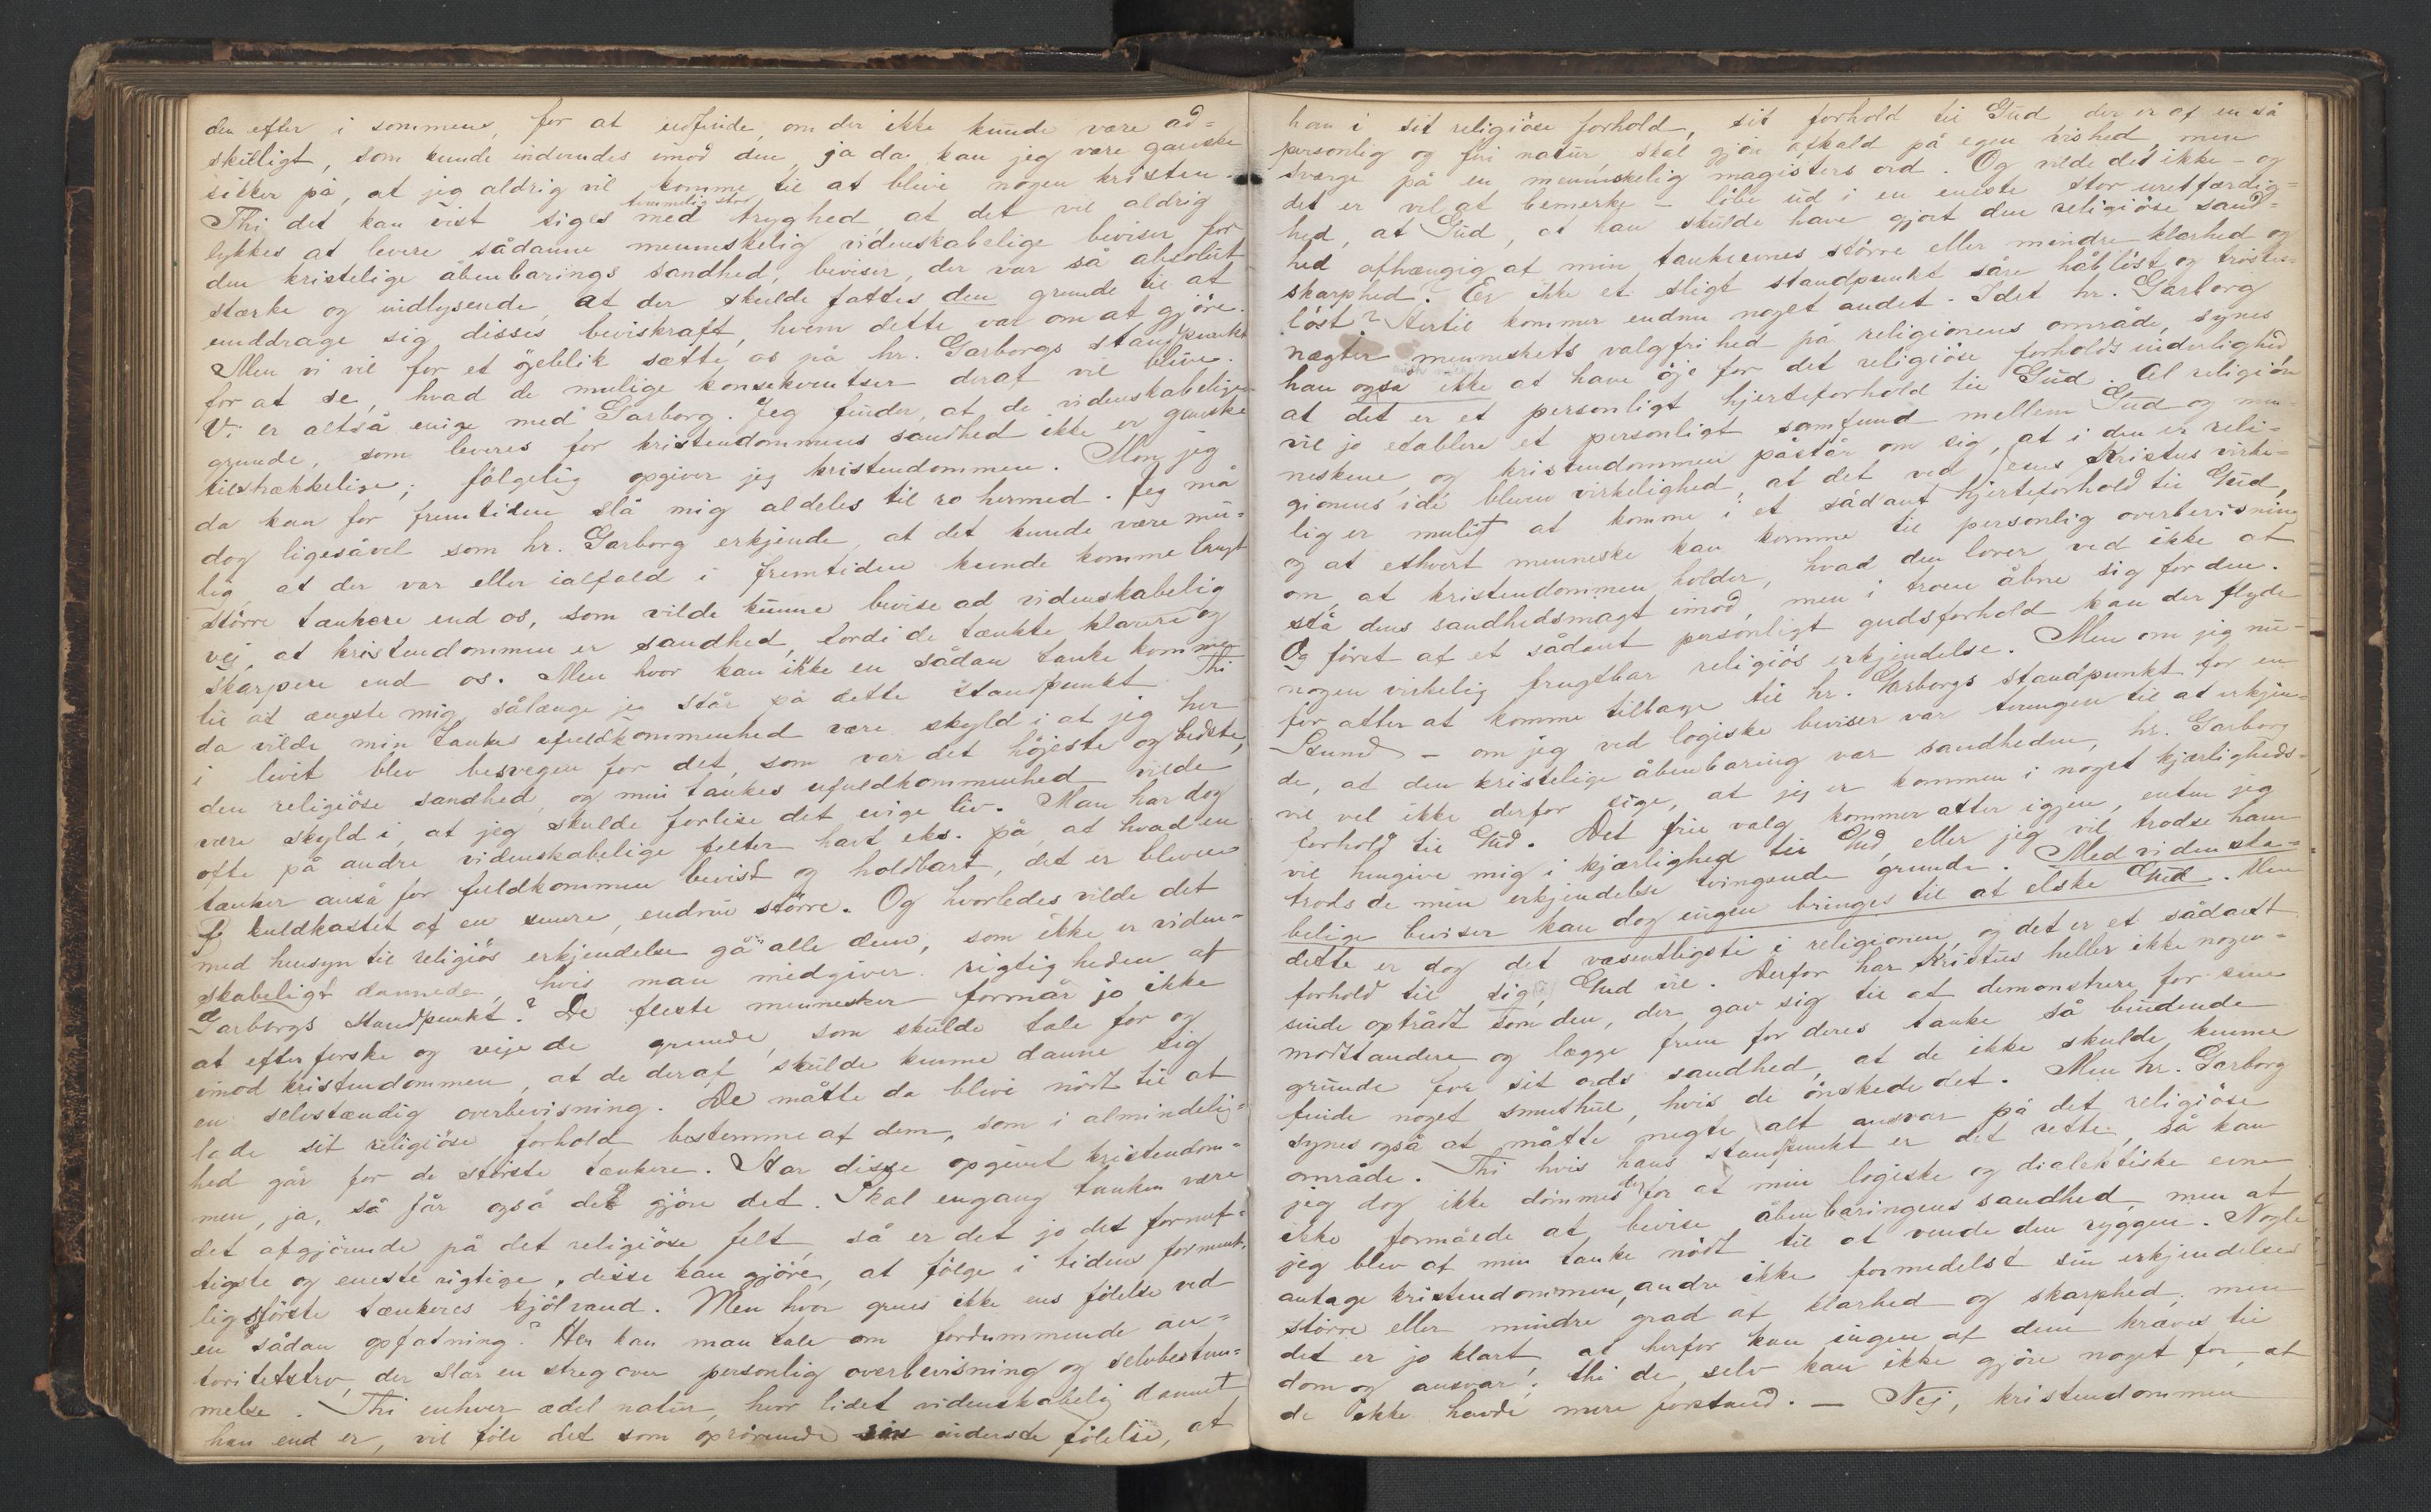 den efter i sommene, for at udfinde, om der ikke kunde være ad=
skilligt, som kunde indvendes imod den, ja da kan jeg være ganske
sikker på, at jeg aldrig vil komme til at blive nogen kristen.
Thi det kan vist siges temmelig stor med tryghed, at det vil aldrig
lykkes at levere sådanne menneskelig videnskabelige beviser for
den kristelige åbenbarings sandhed, beviser, der var så absolut
stærke og indlysende, at der skulde fattes den grunde til at
unddrage sig disses beviskraft, hvem dette var om at gjöre.
Men vi vil for et øjeblik sætte os på hr. Garborgs standpunkt
for at se, hvad de mulige konsekventser deraf vil blive.
Vi er altså enige med Garborg. Jeg finder, at de videnskabelige
grunde, som leveres for kristendommens sandhed ikke er ganske
tilstrækkelige; fölgelig opgiver jeg kristendommen. Mon jeg
da kan for fremtiden slå mig aldeles til ro hermed. Jeg må
dog ligesåvel som hr. Garborg erkjende, at det kunde være mu=
lig, at der var eller ialfald i fremtiden kunde komme langt
större tænkere end os, som vilde kunne bevise ad videnskabelig
vej, at kristendommen er sandhed, fordi de tænkte klarere og
skarpere end os. Men hvor kan ikke en sådan tanke komme
til at ængste mig, sålænge jeg står på dette standpunkt. Thi
da vilde min tankes ufuldkommenhed være skyld i at jeg her
i livet blev besvegen for det, som var det höjeste og bedste,
den religiöse sandhed, og min tankes ufuldkommenhed vilde
være skyld i, at jeg skulde forlise det evige liv. Man har dog
ofte på andre videnskabelige felter havt eks. på, at hvad en
tænker anså for fuldkommen bevist og holdbart, det er bleven
kuldkastet af en senere, endnu större. Og hvorledes vilde det
med hensyn til religiös erkjendelse gå alle dem, som ikke er viden=
skabelige dannede, hvis man medgiver rigtigheden af
Garborgs standpunkt? De fleste mennesker formår jo ikke
at efterforske og veje de grunde, som skulde tale for og
imod kristendommen, at de deraf skulde kunne danne sig
en selvstændig overbevisning. De måtte da blive nödt til at
lade sit religiöse forhold bestemme af dem, som i almindelig=
hed går for de störste tænkere. Har disse opgivet kristendom=
men, ja, så får også de gjöre det. Skal engang tanken være
det afgjörende på det religiöse felt, så er det jo det fornuf=
tigste og eneste rigtige, disse kan gjöre, at fölge i tidens forment=
lig störste tænkeres kjölvand. Men hvor grues ikke ens fölelse ved
en sådan opfatning? Her kan man tale om fordummende au=
toritetstro, der slår en streg over personlig overbevisning og selvbestem=
melse. Thi enhver ædel natur, hvor lidet videnskabelig dannet
han end er, vil föle det som oprörende sin inderste fölelse, at
han i sit religiöse forhold, sit forhold til Gud der er af en så
personlig og fin natur, skal gjöre afkald på egen vished, men
sværge på en menneskelig magisters ord. Og vilde det ikke – og
det er vel at bemerke – löbe ud i en eneste stor uretfærdig=
hed, at Gud, at han skulde have gjort den religiöse sand=
hed afhængig af min tankeevnes större eller mindre klarhed og
skarphed? Er ikke et sligt standpunkt såre håblöst og tröstes=
löst? Hertil kommer endnu noget andet. Idet hr. Garborg
nægter menneskets valgfrihed på religionens område, synes
han også ikke at have öje for det religiöse forholds inderlighed
at det er et personligt hjerteforhold til Gud. Al religiön
vil jo etablere et personligt samfund mellem Gud og men=
neskene, og kristendommen påstår om sig, at i den er reli=
gionens idé bleven virkelighed, at det ved Jesus Kristus virke=
lig er muligt at komme i et sådant hjerteforhold til Gud,
og at ethvert menneske kan komme til personlig overbevisning
om, at kristendommen holder, hvad den lover ved ikke at
stå dens sandhedsmagt imod, men i troen åbne sig for den.
Og först af et sådant personligt gudsforhold kan der flyde
nogen virkelig frugtbar religiös erkjendelse. Men om jeg nu –
for atter at komme tilbage til hr. Garborgs standpunkt for en
Stund – om jeg ved logiske beviser var tvungen til at erkjen=
de, at den kristelige åbenbaring var sandheden, hr. Garborg
vil vel ikke derfor sige, at jeg er kommen i noget kjærligheds=
forhold til Gud. Det frie valg kommer atter igjen, enten jeg
vil hengive mig i kjærlighed til Gud, eller jeg vil trodse ham
trods de min erkjendelse tvingende grunde. Med videnska=
belige beviser kan dog ingen bringes til at elske Gud. Men
dette er dog det væsentligste i religionen, og det er et sådant
forhold til sig, Gud vil. Derfor har Kristus heller ikke nogen=
sinde optrådt som den, der gav sig til at demonstrere for sine
modstandere og lægge frem for deres tanke så bindende
grunde for sit ords sandhed, at de ikke skulde kunne
finde noget smuthul, hvis de önskede det. Men hr. Garborg
synes også at måtte negte alt ansvar på det religiöse
område. Thi hvis hans standpunkt er det rette, så kan
jeg dog ikke dömmes derfor at min logiske og dialektiske evne
ikke formåede at bevise åbenbaringens sandhed, men at
jeg blev af min tanke nödt til at vende den ryggen. Nogle
antage kristendommen, andre ikke formedelst sin erkjendelses
större eller mindre grad af klarhed og skarphed; men
det er jo klart, at herfor kan ingen af dem kræves til
dom og ansvar; thi de selv kan ikke gjöre noget for, at
de ikke havde mere forstand. – Nej, kristendommen